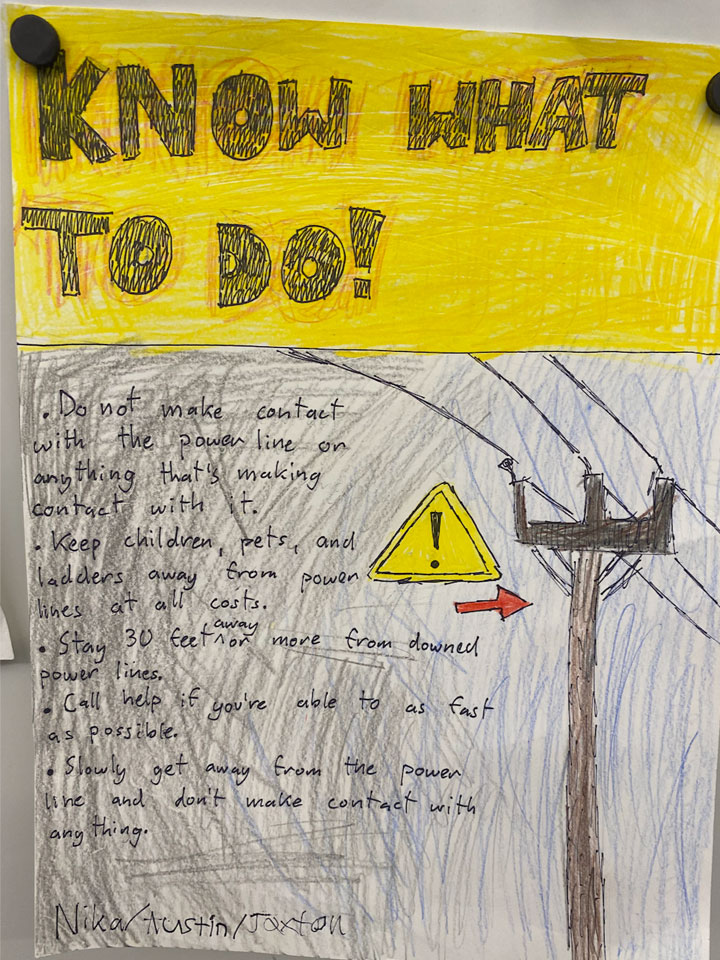 KNOW WHAT
TO DO!
• Do not make contact
with the power line or
anything that's making
contact with it.
• Keep children, pets, and
ladders away from power
lines at all costs.
• Stay 30 feet away or more from downed
power lines.
• Call help if you're able to as fast
as possible.
• Slowly get away from the power
line and don't make contact with
anything.
!
Nika/Austin/Jaxton